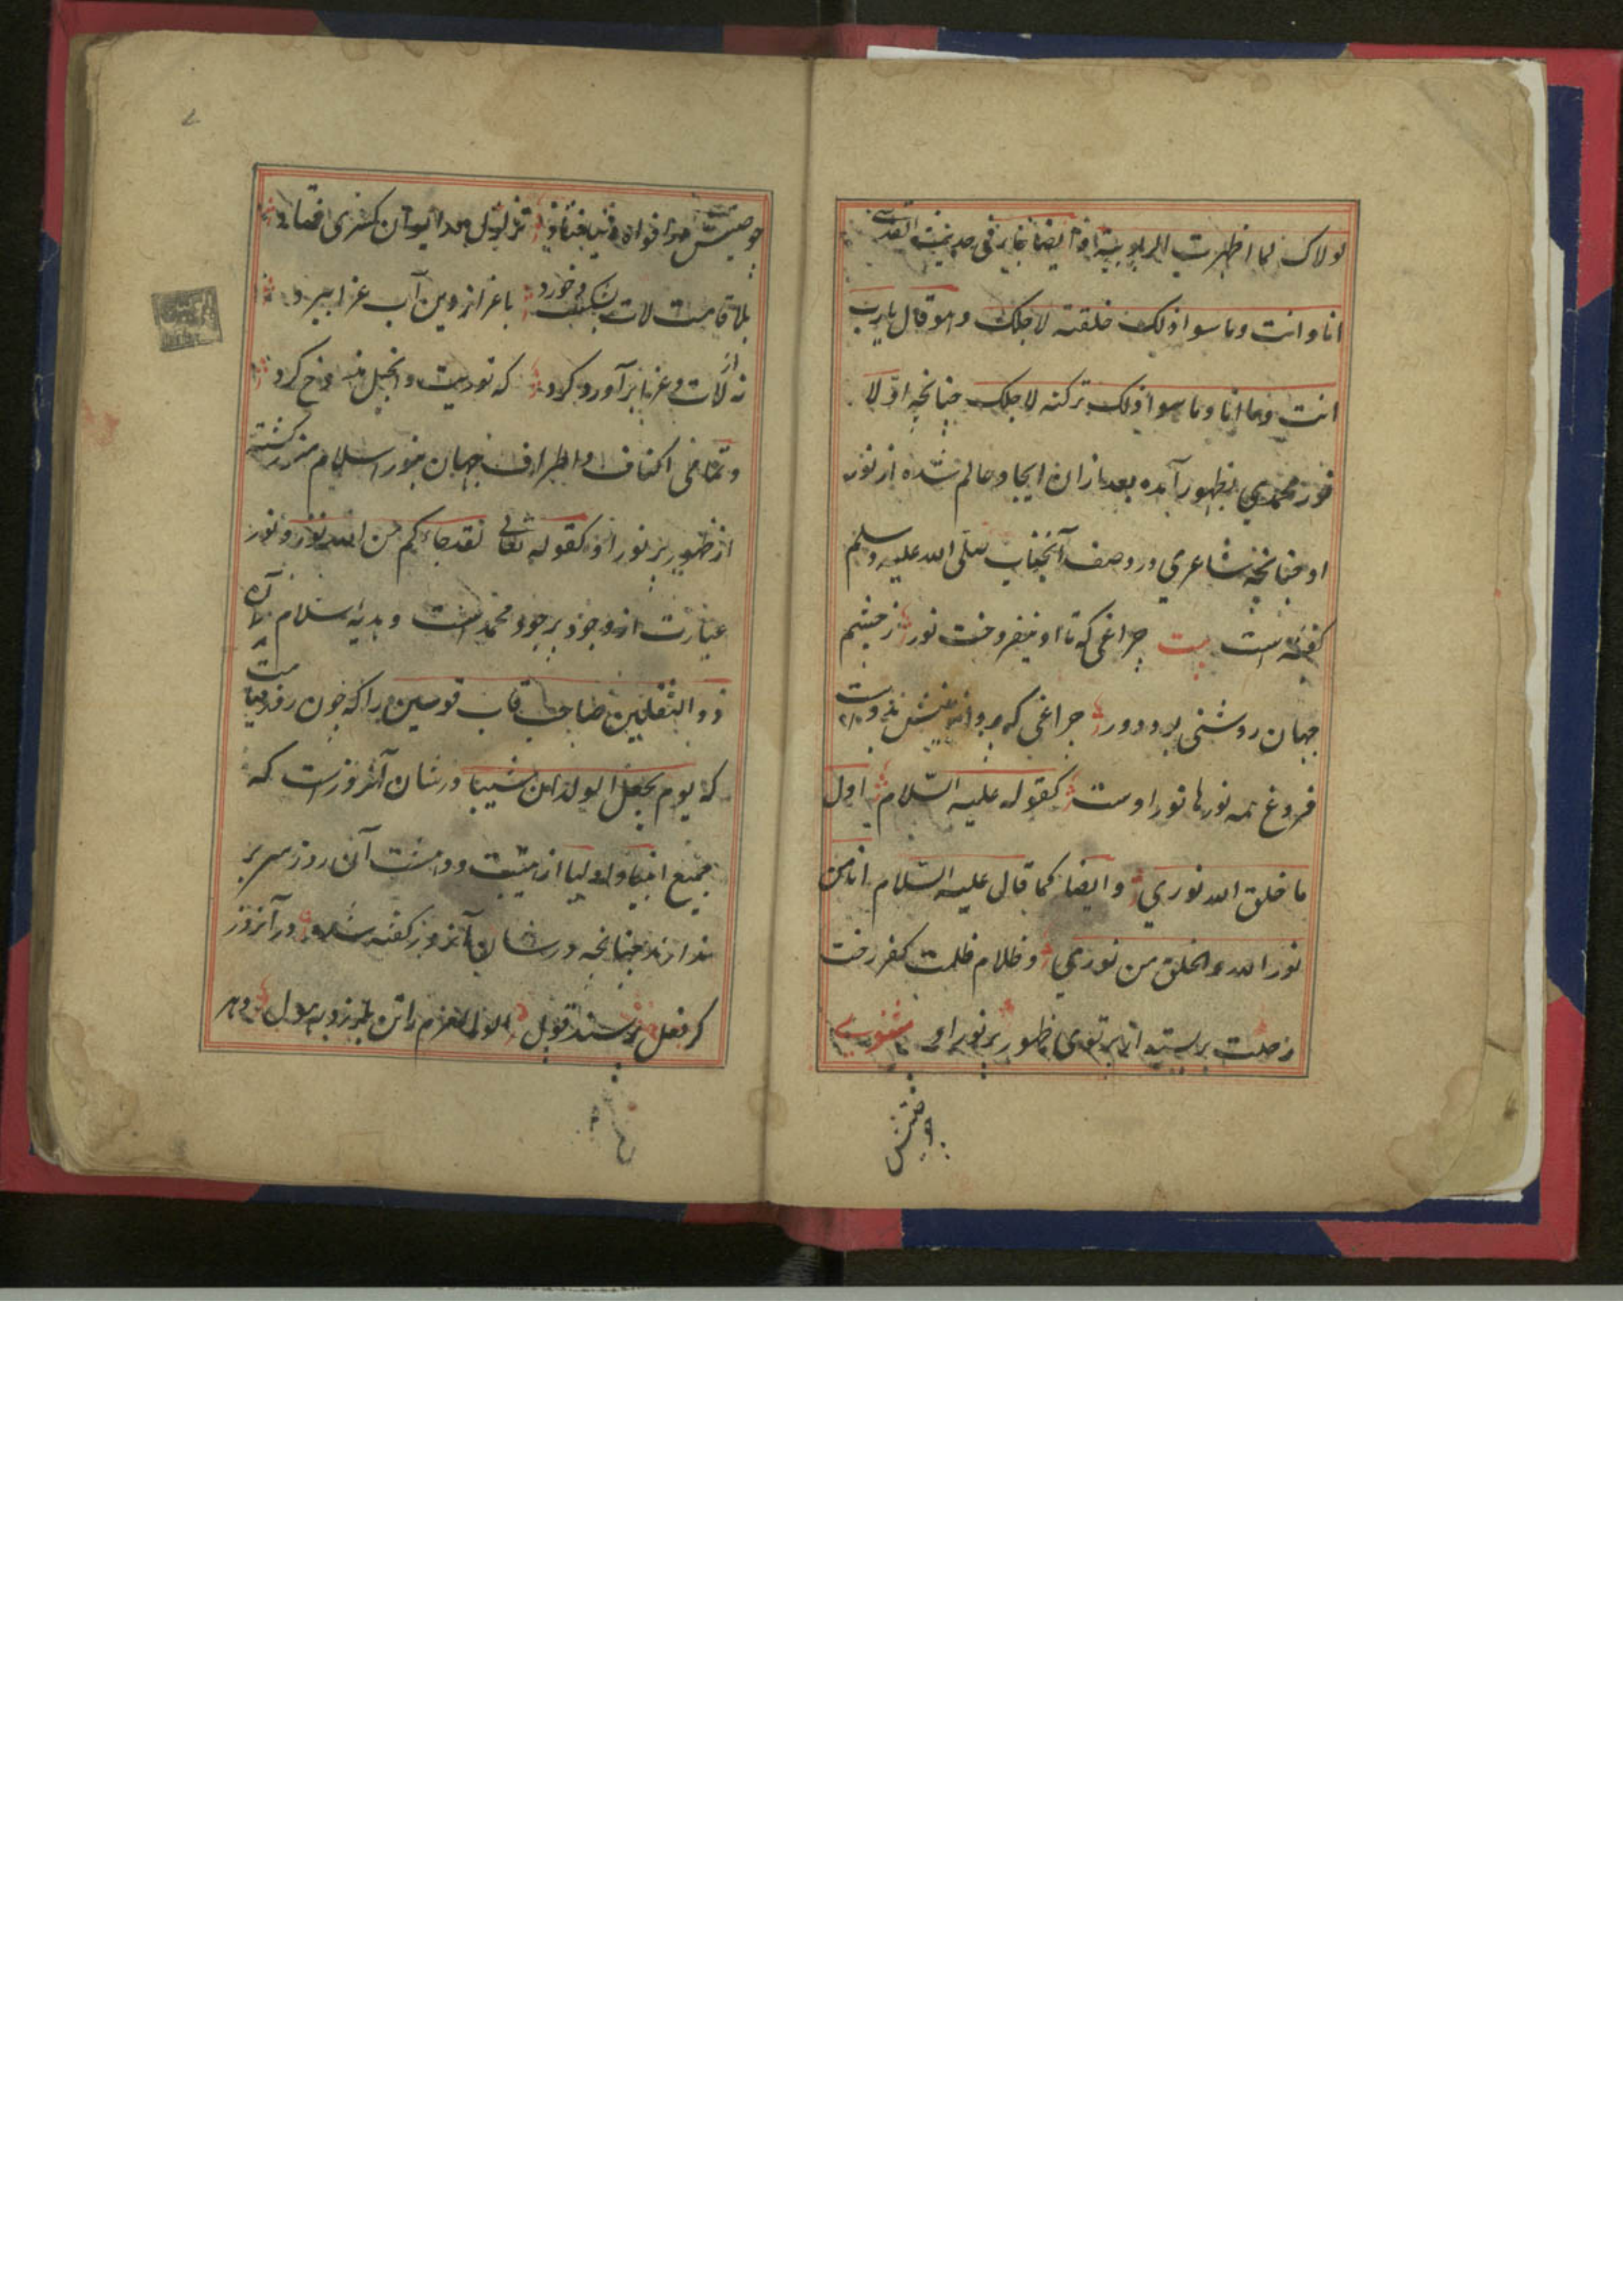 لولاک لما اظهرت الربوبیة و ایضا فی حدیث القدسی
انا و انت و ما سوا ذلک خلقته لاجلک و هو قال یا رب
انت و ما انا و ما سوا ذلک ترکته لاجلک چنانچه اوّلا
نور محمدی بظهور آمده بعد ازان ایجاد عالم شده از نور
او چنانچه شاعری در وصف آنجناب صلی الله علیه وسلم
گفته است بیت چراغی که تا او نیفروخت نور ز چشم
جهان روشنی بود دور چراغی که پروانه بینش بدوست
فروغ همه نورها نور اوست کقوله علیه السّلام اول
ما خلق الله نوری و ایضا کما قال علیه السّلام انا من
نور الله والخلق من نوری و ظلام ظلمت کفر رخت
رحلت بر بسته از پرتوی ظهور پر نور او مثنوی
چو صیتش
چو صیتش در افواه دنیا فتاد تزلزل در ایوان کسری فتاد
بلا قامت لات بشکست خورد باعزاز دین آب عزا ببرد
نه از لات و عزا برآورد گرد که توریت و انجیل منسوخ کرد
و تمامی اکناف و اطراف جهان بنور اسلام منور گشته
از ظهور پر نور او کقوله تعالی لقد جاءکم من الله نور و نور
عبارت از وجود پر جود محمد است و هدیه اسلام آن
ذو الثقلین صاحب قاب قوسین را که چون روز قیامت
که یوم یجعل الولدان شیبا در شان آنروز است که
جمیع انبیا و اولیا از هیبت و دهشت آن روز سر بر
ندارند چنانچه در شان آنروز گفته شده در آنروز
کز فعل پرسند و قول اولوالعزم را تن بلرزد ز هول